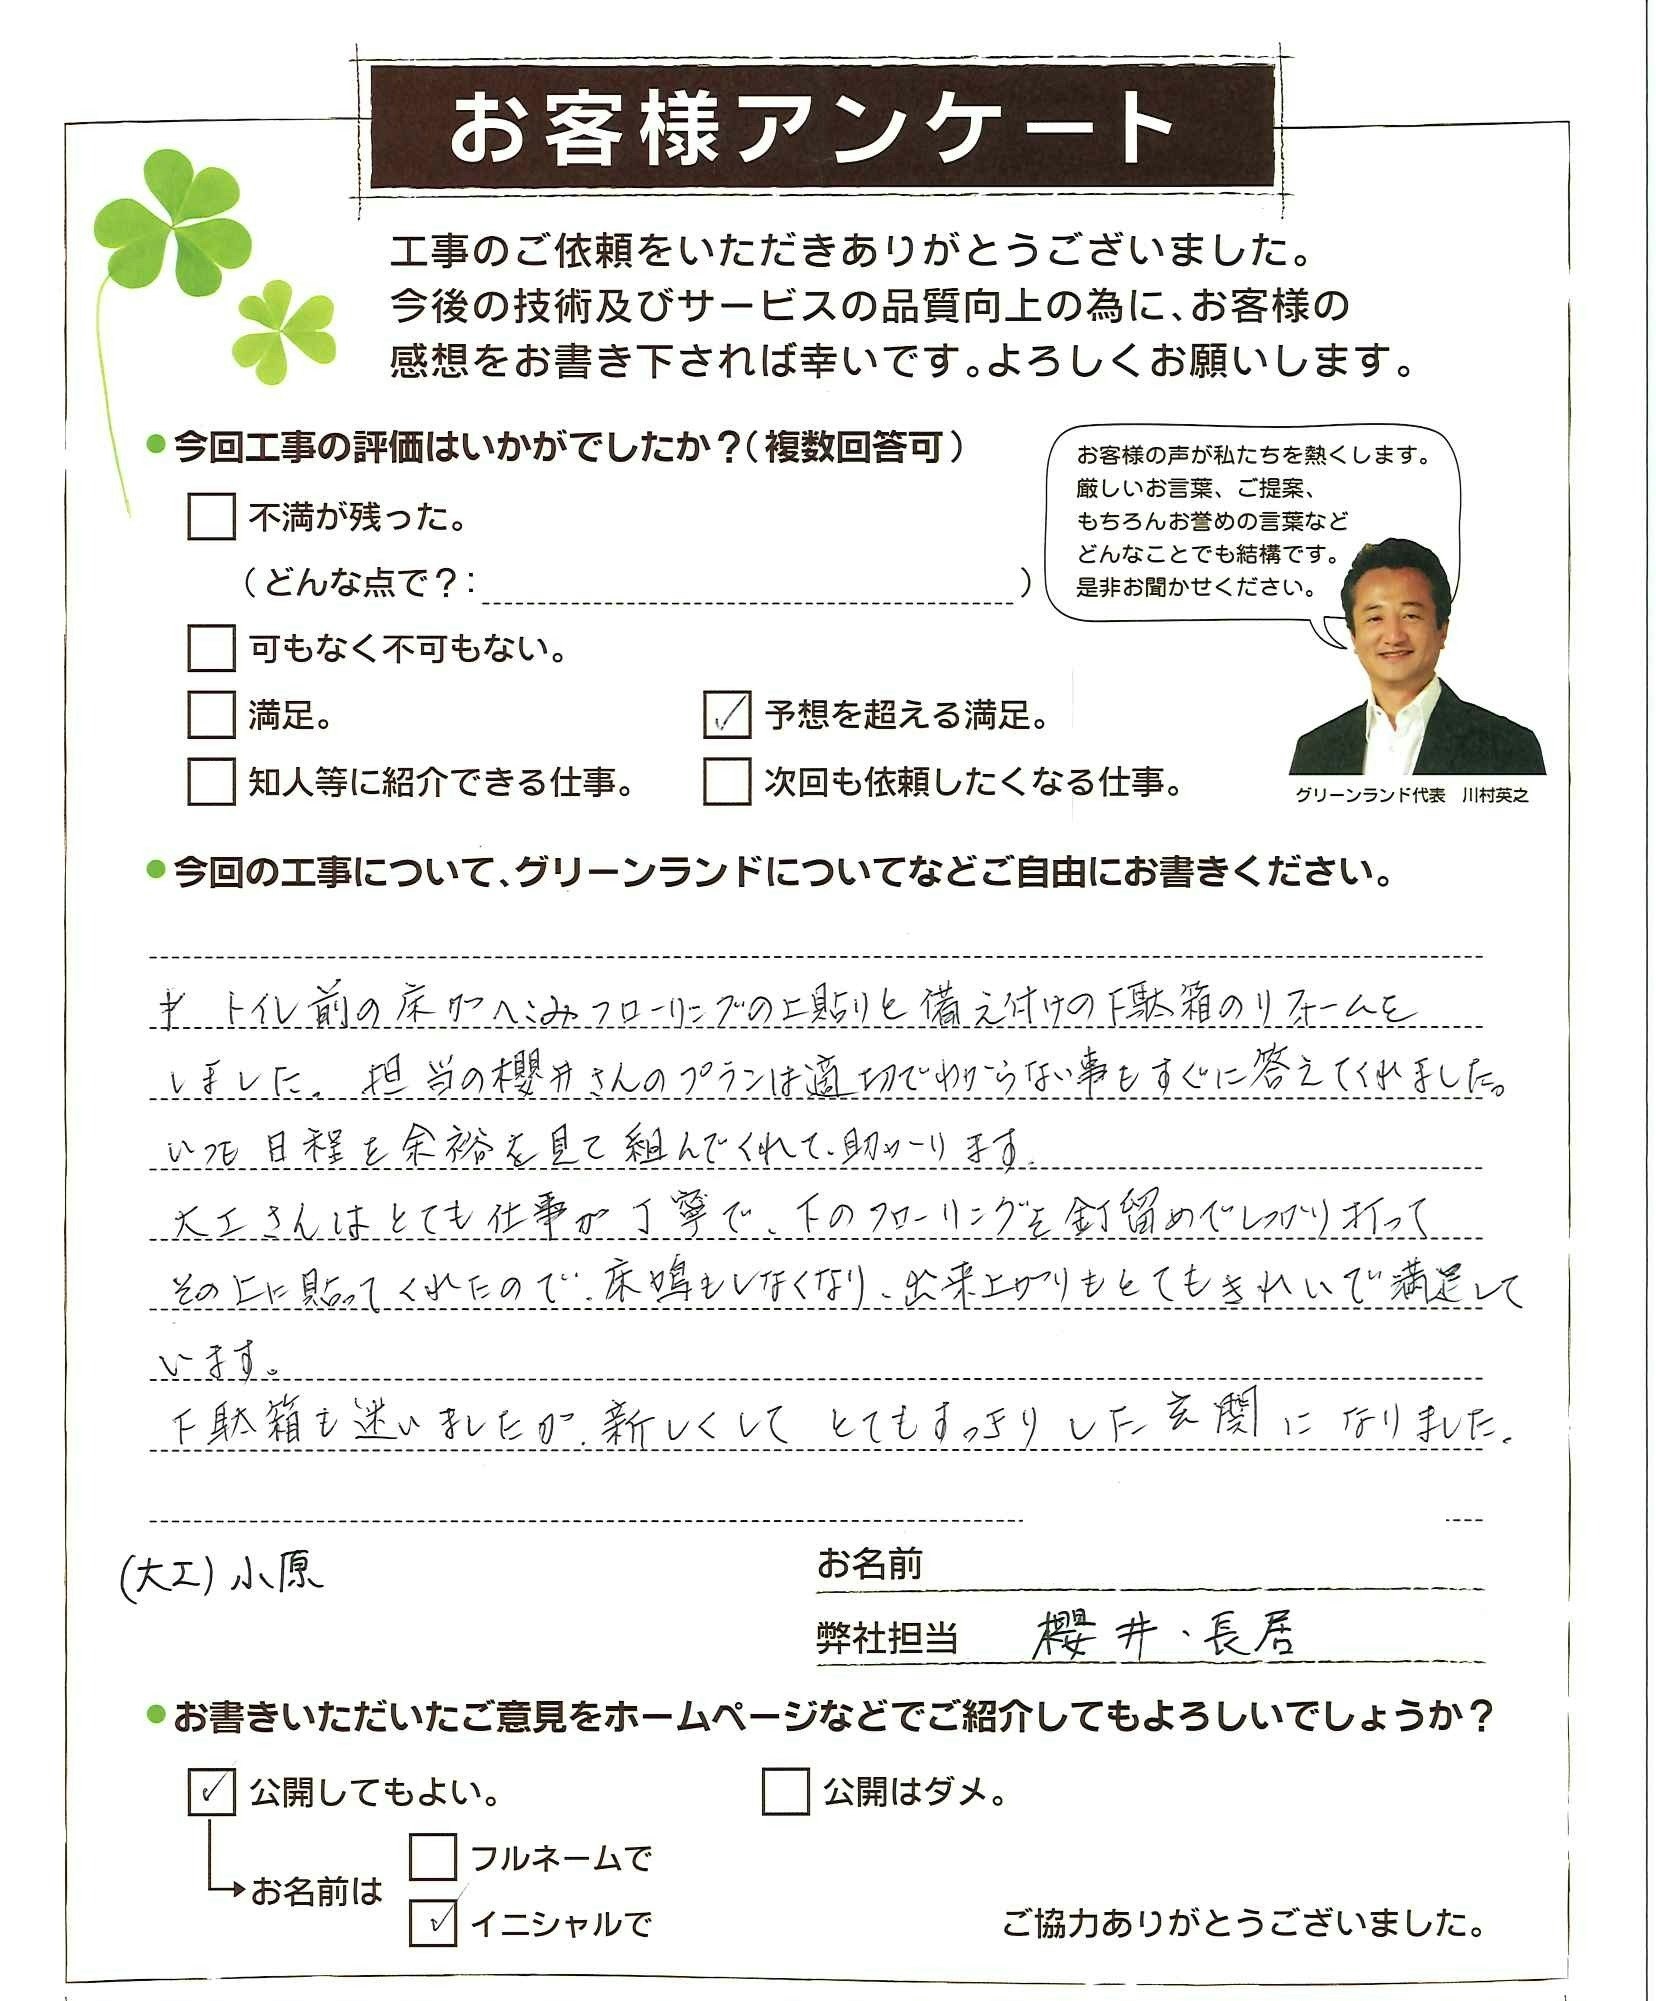 お客様アンケート
工事のご依頼をいただきありがとうございました。
今後の技術及びサービスの品質向上の為に、お客様の
感想をお書き下されば幸いです。よろしくお願いします。
●今回工事の評価はいかがでしたか？（複数回答可）
お客様の声が私たちを熱くします。
厳しいお言葉、ご提案、
もちろんお誉めの言葉など
どんなことでも結構です。
是非お聞かせください。
□ 不満が残った。
（どんな点で？：　　　　）
□ 可もなく不可もない。
□ 満足。 ☑ 予想を超える満足。
□ 知人等に紹介できる仕事。 □ 次回も依頼したくなる仕事。
グリーンランド代表　川村英之
●今回の工事について、グリーンランドについてなどご自由にお書きください。
トイレ前の床がへこみフローリングの上貼りと備え付けの下駄箱のリフォームを
しました。担当の櫻井さんのプランは適切でわからない事もすぐに答えてくれました。
いつも日程を余裕を見て組んでくれて、助かります。
大工さんはとても仕事が丁寧で、下のフローリングを釘留めでしっかり打って
その上に貼ってくれたので、床鳴もしなくなり、出来上がりもとてもきれいで満足して
います。
下駄箱も迷いましたが、新しくしてとてもすっきりした玄関になりました。
(大工) 小原
お名前
弊社担当 櫻井・長居
●お書きいただいたご意見をホームページなどでご紹介してもよろしいでしょうか？
☑ 公開してもよい。 □ 公開はダメ。
お名前は
□ フルネームで
☑ イニシャルで
ご協力ありがとうございました。